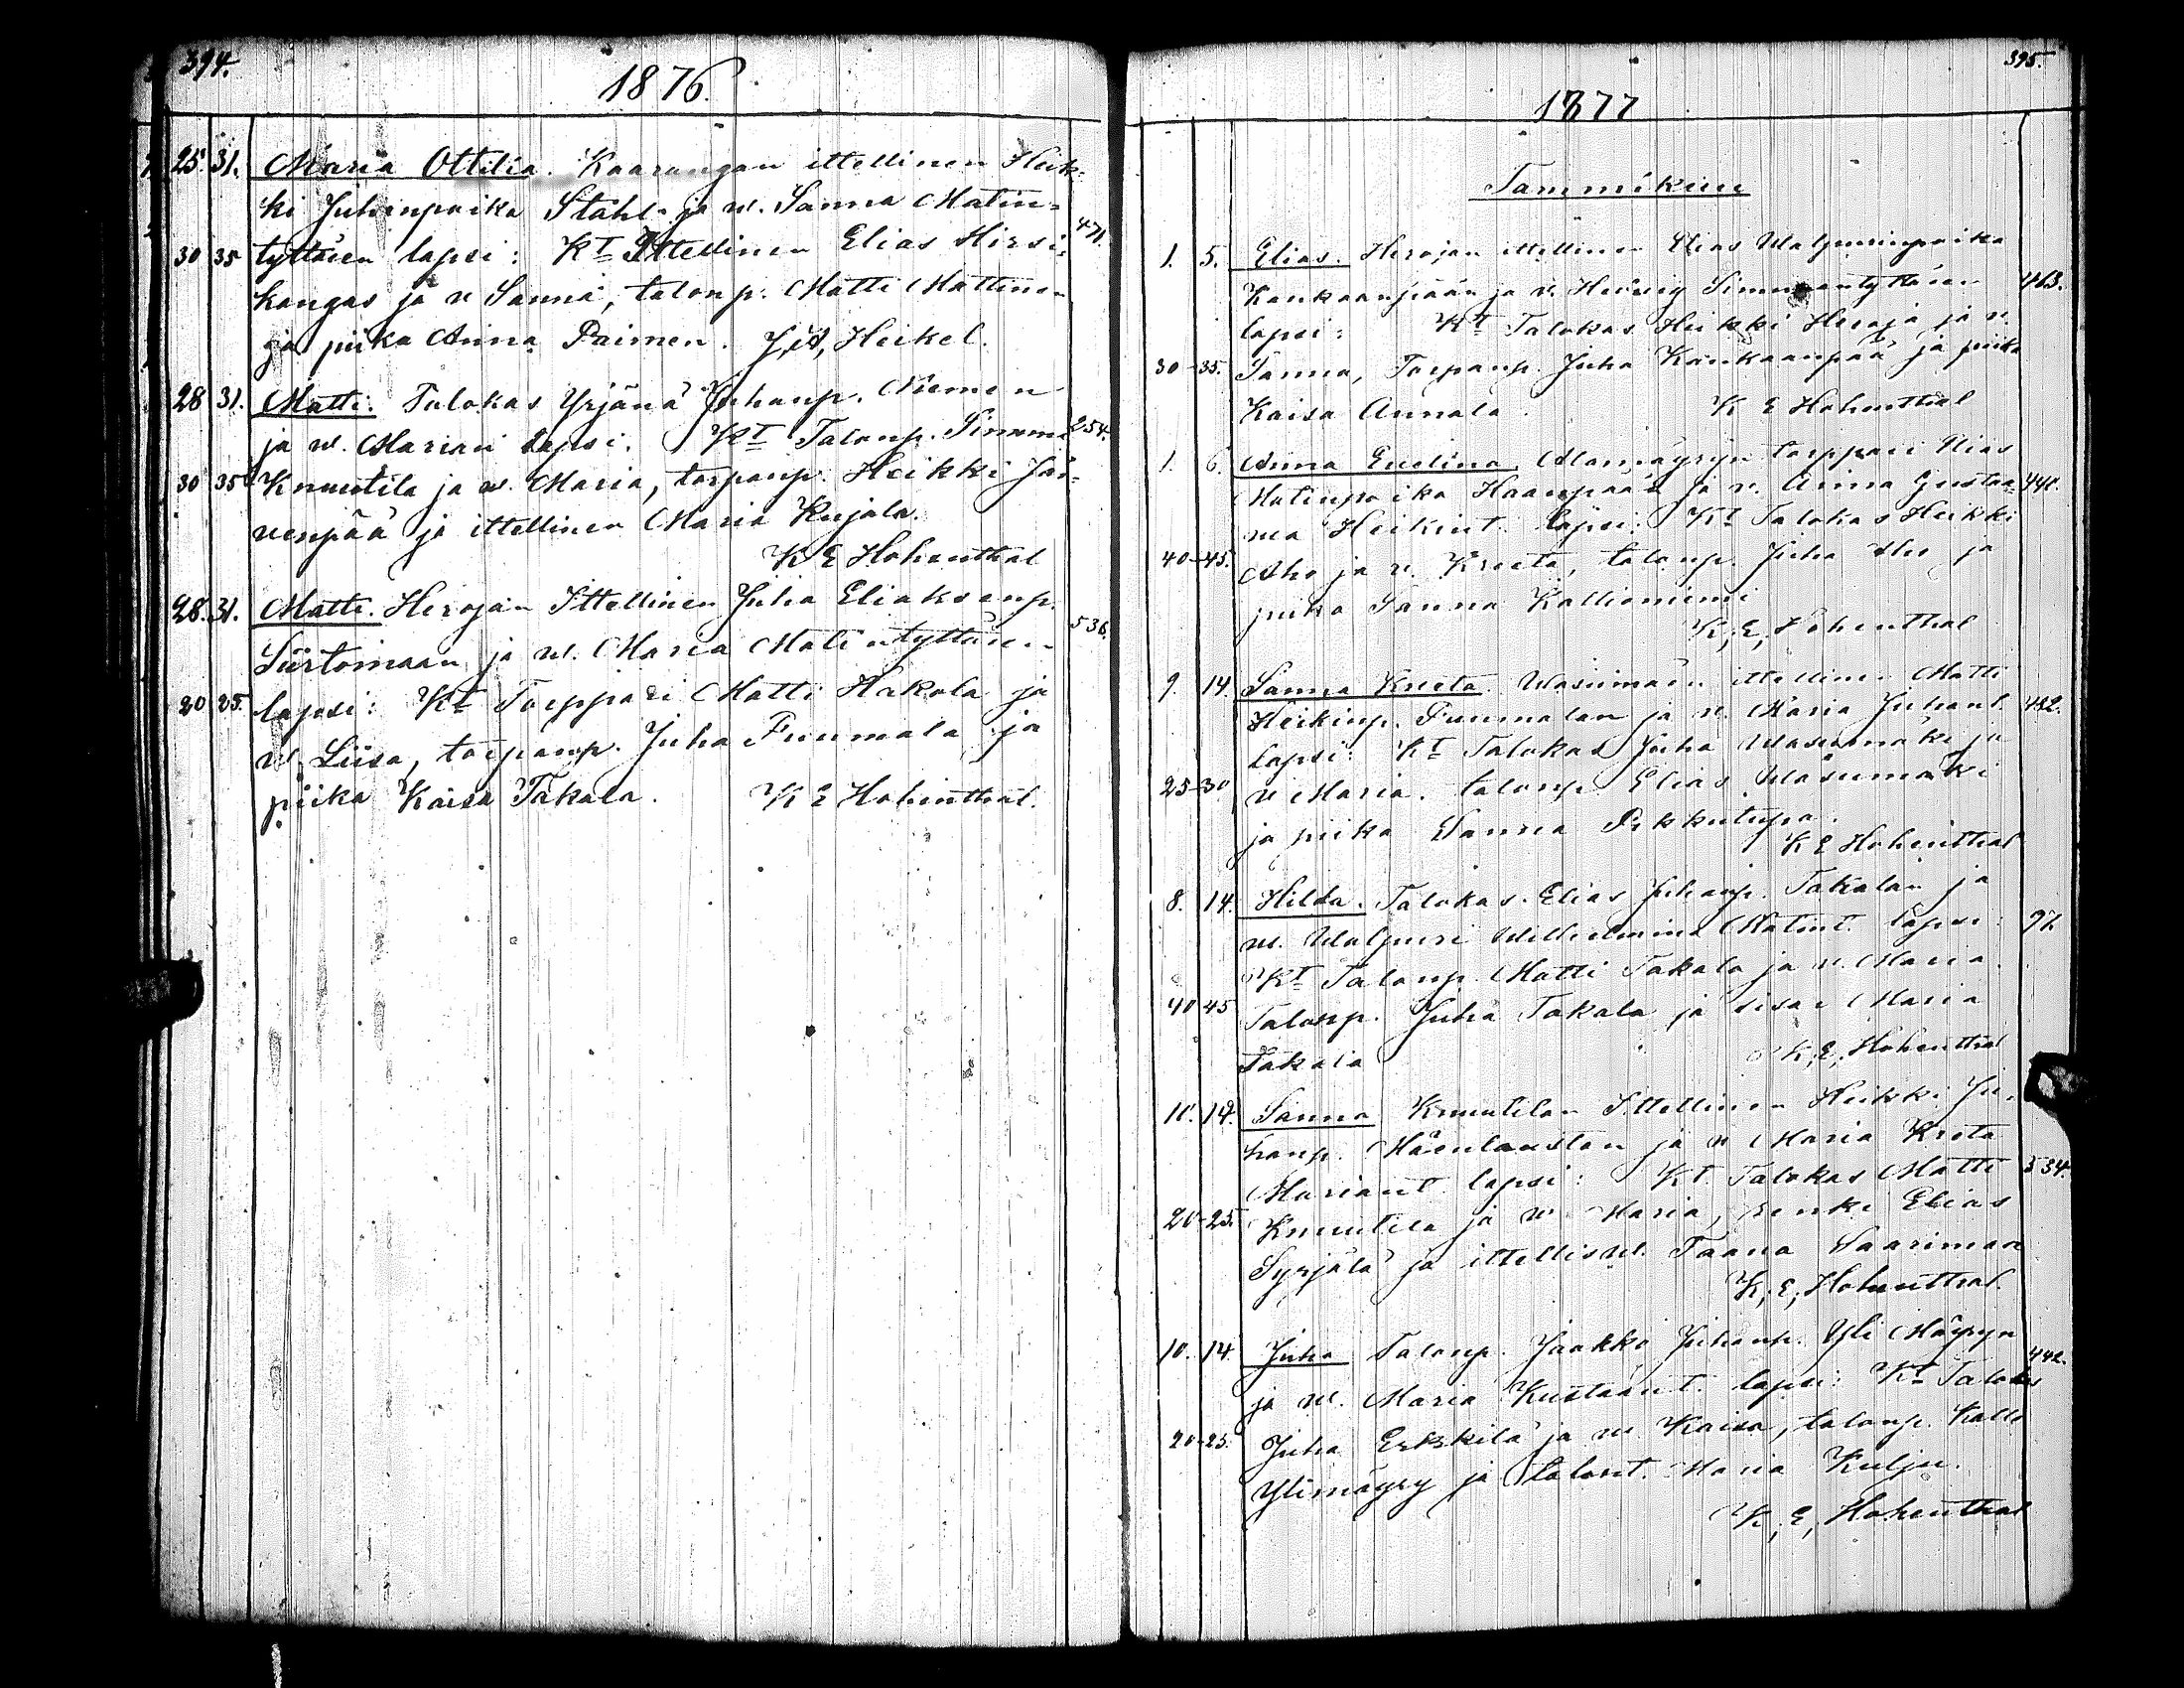 394.
1876.
25. 31. Maria Ottilia. Kaarangan ittellinen Heik-
ki Juhanpoika Ståhl ja w. Sanna Matin-
471.
30 35 tyttären lapsi: Kt Ittellinen Elias Hirsi-
kangas ja w Sanna, talonp. Matti Mattinen
ja piika Anna Paimen. Heikel.
28 31. Matti. Talokas Yrjänä Juhanp. Niemen
ja w. Marian lapsi. Kt Talonp. Simmi 254.
30 35 Knuutila ja w. Maria, torpanp. Heikki Jär-
venpää ja ittellinen Maria Kujala.
K E Hohenthal
28. 31. Matti. Herojan Ittellinen Juha Eliaksenp.
536.
Siirtomaan ja w. Maria Matintyttären
20 25. lapsi: Kt Torppari Matti Hakola ja
w. Liisa, torpanp. Juha Fuumala ja
piika Kaisa Takala. K E Hohenthal.
395.
1877
Tammikuu
1. 5. Elias. Herojan ittellinen Elias Walpurinpoika
Kankaanpään ja w. Hedvig Simmuntyttären 463.
lapsi: Kt Talokas Heikki Heroja ja w.
30-35. Sanna, Torpanp. Juha Kankaanpää ja piika
Kaisa Annala. K E Hohenthal
1. 6. Anna Evelina. Alamäyryn torppari Elias
Matinpoika Haanpään ja w. Anna Gustaa- 441.
wa Heikint. lapsi: Kt Talokas Heikki
40-45. Aho ja w. Kreeta, talonp. Juha Aho ja
piika Sanna Kallioniemi
K, E, Hohenthal
9. 14. Sanna Kreeta. Wasumäen ittellinen Matti
Heikinp. Fuumalan ja w. Maria Juhant. 432.
lapsi: Kt Talokas Juha Wasumäki ja
25-30 w Maria. talonp Elias Wasumäki
ja piika Sanna Pikkutupa.
K E Hohenthal
8. 14. Hilda. Talokas Elias Juhanp. Takalan ja
w. Walpuri Wilhelmina Matint. lapsi: 97.
Kt Talonp. Matti Takala ja w. Maria.
40 45 Talonp. Juha Takala ja sisar Maria
Takala K, E, Hohenthal
11. 14. Sanna Knuutilan Ittellinen Heikki Ju-
hanp. Mäenlaustan ja w Maria Kreta
Mariant. lapsi: Kt. Talokas Matti 534.
20-25. Knuutila ja w. Maria, renki Elias
Syrjälä ja ittellisw. Saana Saariman
K, E, Hohenthal.
10. 14. Juha Talonp. Jaakko Juhanp. Yli Mäyryn
442.
ja w. Maria Kustaant. lapsi: Kt Talokas
20-25. Juha Erkkilä ja w Kaisa, talonp. Kalle
Ylimäyry ja talont. Maria Kulju.
K, E, Hohenthal